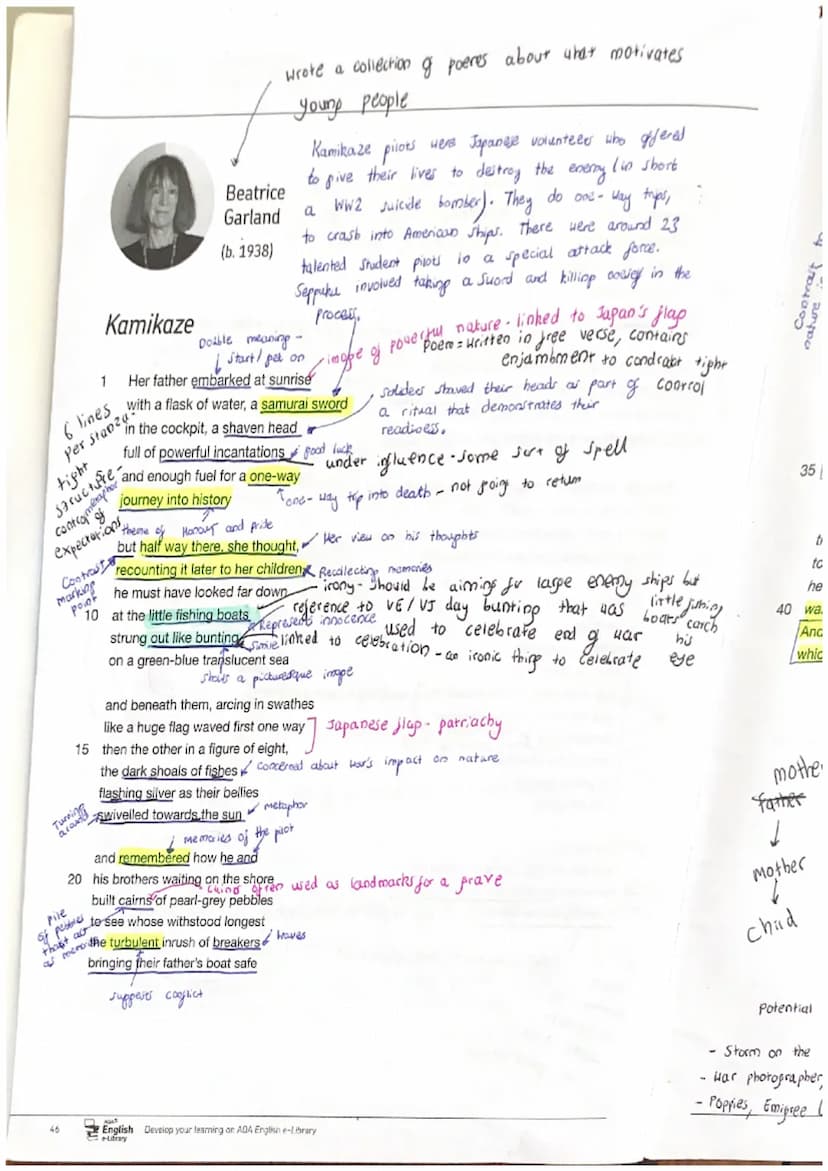 wrote a collection of poems about what motivates
young people
Beatrice
Garland
(b. 1938)
Kamikaze pilots were Japanese volunteers who offered
to give their lives to destroy the enemy (in short
a WW2 suicide bomber). They do one-way trips,
to crash into American ships. There were around 23
talented student pilots in a special attack force.
Seppuku involved taking a sword and killing in the
process.
Kamikaze
Double meaning -
start / get on
image of powerful nature - linked to Japan's flag
Poem = written in free verse, contains
enjambment to contrast tight
control
1 Her father embarked at sunrise
with a flask of water, a samurai sword
in the cockpit, a shaven head
full of powerful incantations
and enough fuel for a one-way
journey into history
soldiers shaved their heads as part of
a ritual that demonstrates their
readiness.
good luck
under influence - some sort of spell
one-way trip into death - not going to return
6 lines
per stanza -
tight
structure -
control of
expectations
metaphor
theme of Honour and pride
but half way there, she thought,
recounting it later to her children,
he must have looked far down
10 at the little fishing boats
strung out like bunting
on a green-blue translucent sea
Her view on his thoughts
Recollecting memories
Contrast
marking
point
irony - should be aiming for large enemy ships but
little fishing
boats catch
his
eye
reference to VE/VJ day bunting that was
used to celebrate end of war
Represents innocence
simile
linked to celebration - an ironic thing to celebrate
shows a picturesque image
and beneath them, arcing in swathes
like a huge flag waved first one way
15 then the other in a figure of eight,
the dark shoals of fishes
flashing silver as their bellies
swivelled towards the sun
Japanese flag - patriachy
concerned about war's impact on nature
Turning
around
metaphor
memories of the pilot
and remembered how he and
20 his brothers waiting on the shore
built cairns of pearl-grey pebbles
to see whose withstood longest
the turbulent inrush of breakers
bringing their father's boat safe
often used as landmarks for a grave
Pile
of pebbles
that act
as
waves
suggests conflict
46
AQA
English
e-Library
Develop your learning on AQA English e-Library
Contrast
nature
35
40 wa
And
whic
mothe
father
mother
child
Potential
- Storm on the
- War photographer,
- Poppies, Emigree